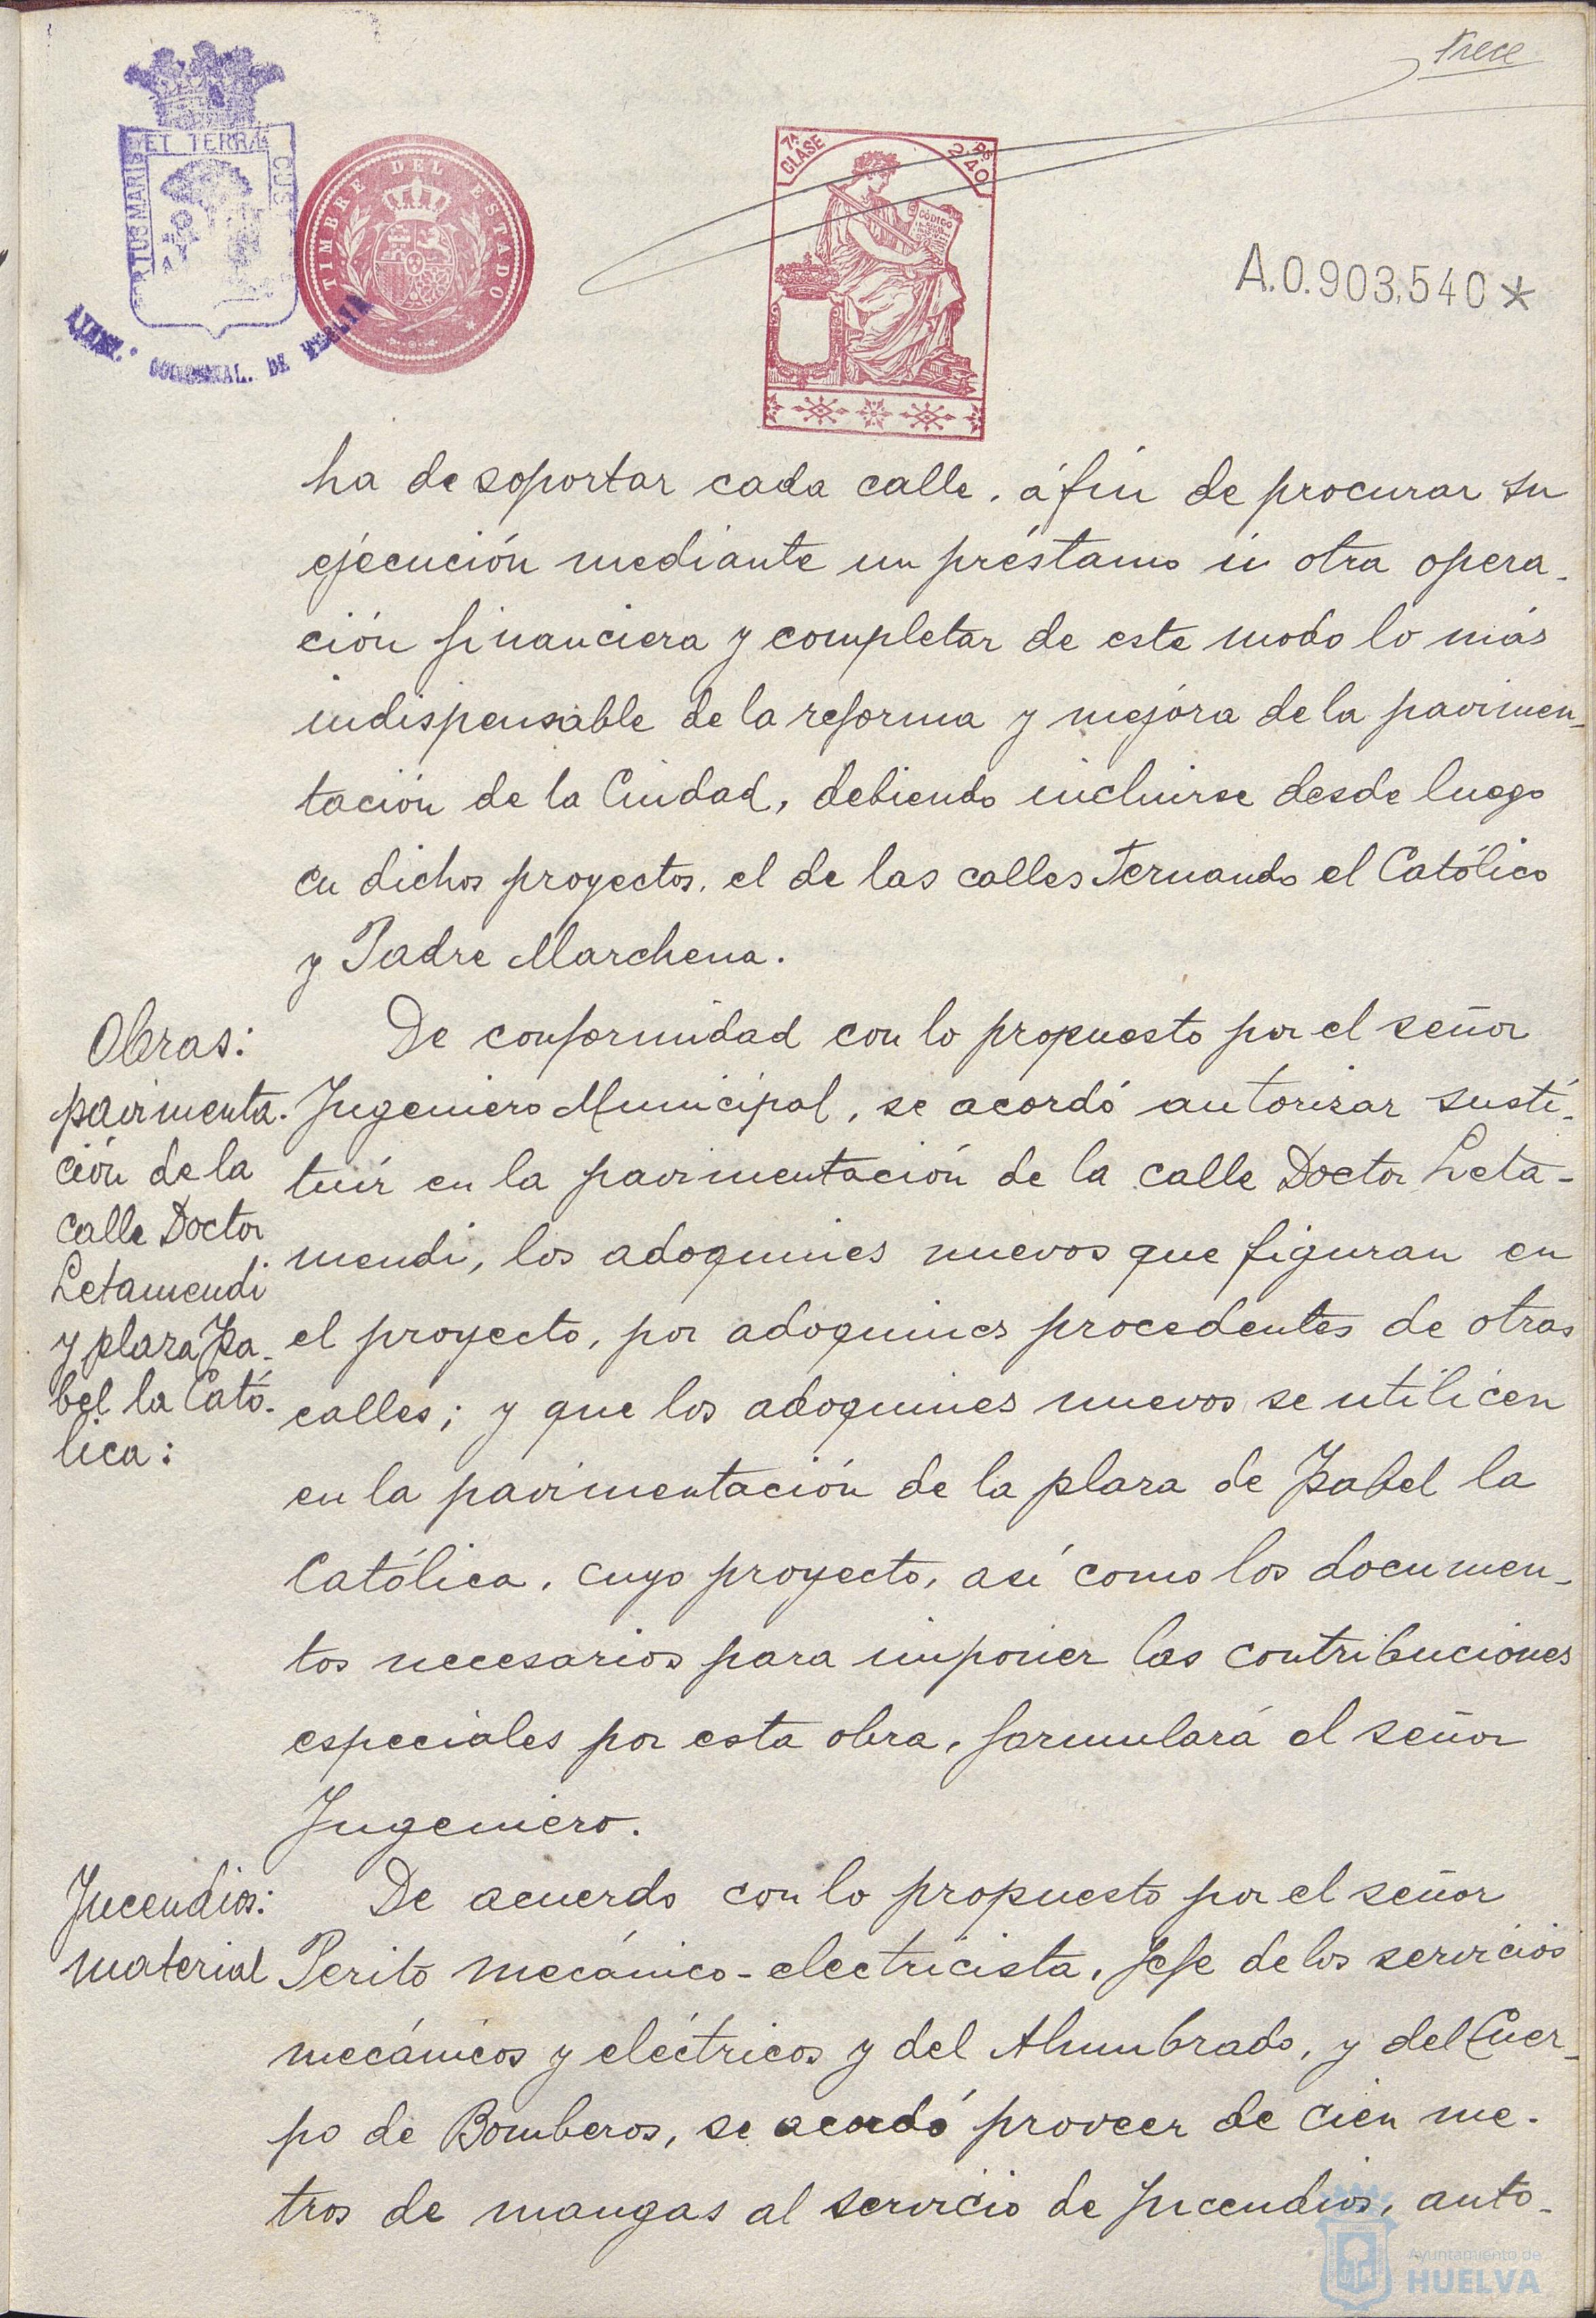 trece
ET TERRA
CUS
TUS MARIS
AYUNT.º CONSTITUCIONAL. DE HUELVA
TIMBRE DEL ESTADO
7ª CLASE
2'40
CÓDIGO
A.0.903.540 *
ha de soportar cada calle, áfin de procurar su
ejecución mediante un préstamo ú otra opera-
ción financiera y completar de este modo lo más
indispensable de la reforma y mejora de la pavimen-
tación de la Ciudad, debiendo incluirse desde luego
en dichos proyectos, el de las calles Fernando el Católico
y Padre Marchena.
Obras:
pavimenta-
ción de la
calle Doctor
Letamendi
y plaza Isa-
bel la Cató-
lica:
De conformidad con lo propuesto por el señor
Ingeniero Municipal, se acordó autorizar susti-
tuír en la pavimentación de la calle Doctor Leta-
mendi, los adoquines nuevos que figuran en
el proyecto, por adoquines procedentes de otras
calles; y que los adoquines nuevos se utilicen
en la pavimentación de la plaza de Isabel la
Católica, cuyo proyecto, así como los documen-
tos necesarios para imponer las contribuciones
especiales por esta obra, formulará el señor
Ingeniero.
Incendios:
material
De acuerdo con lo propuesto por el señor
Perito mecánico-electricista, Jefe de los servicios
mecánicos y eléctricos y del Alumbrado, y del Cuer-
po de Bomberos, se acordó proveer de cien me-
tros de mangas al servicio de Incendios, auto-
Ayuntamiento de
HUELVA